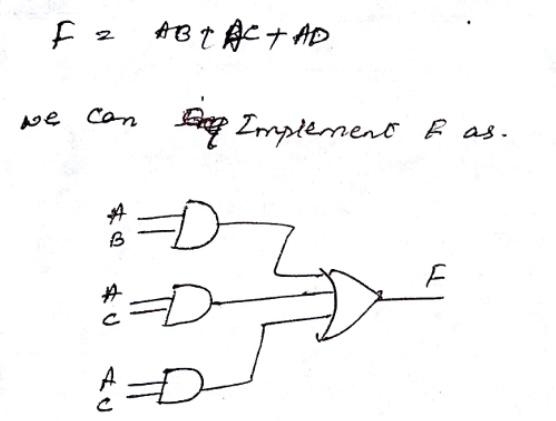 F = AB + AC + AD
we can Implement F as.
A
B
A
C
F
A
C